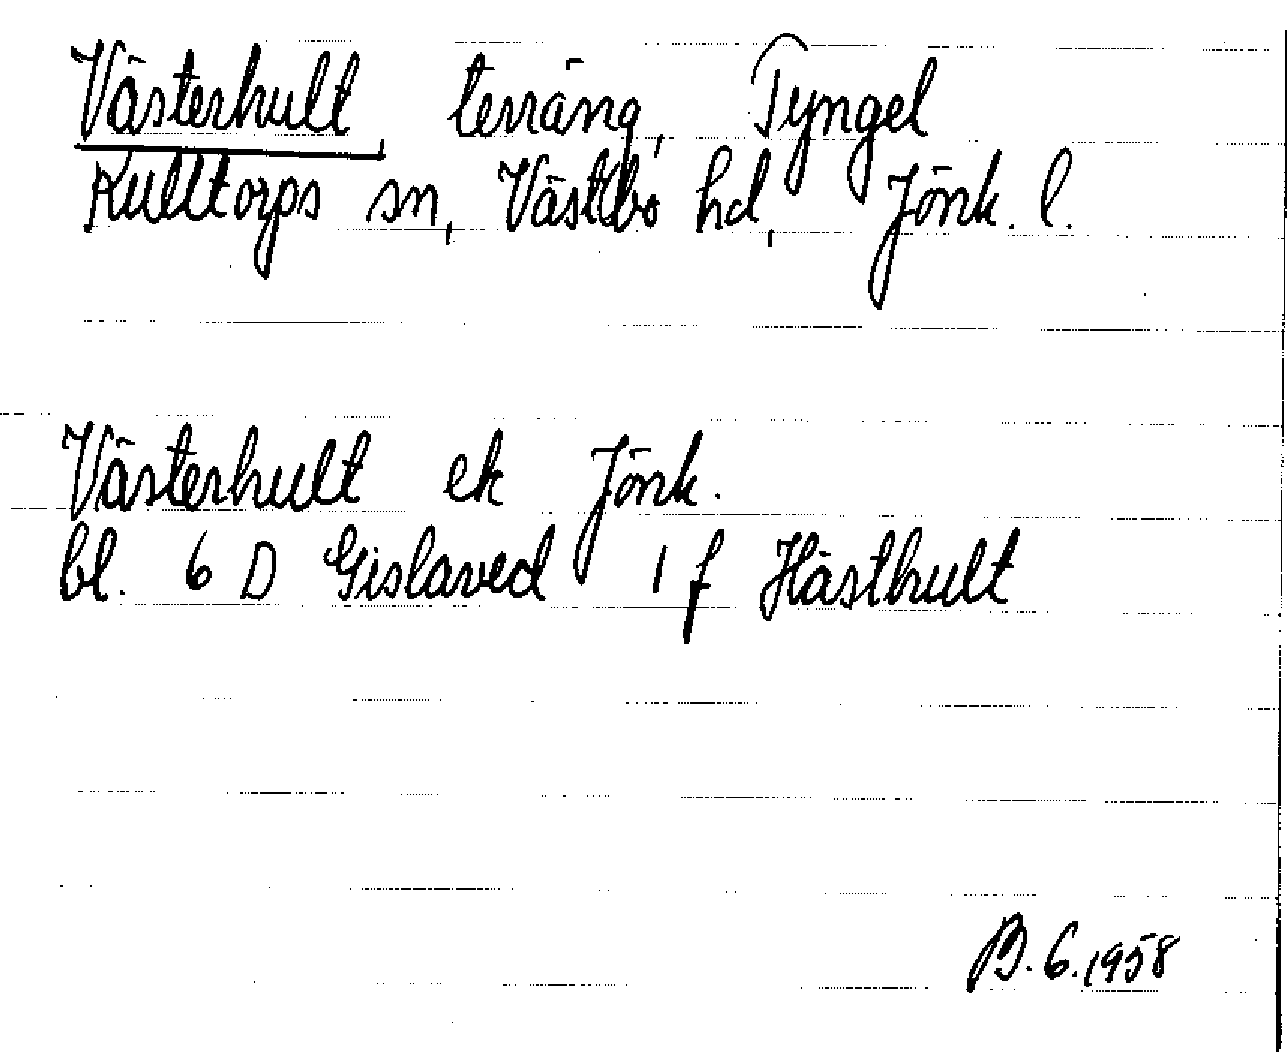 Västerhult, terräng, Tyngel
Kulltorps sn, Västbo hd, Jönk. l.
Västerhult ek Jönk.
bl. 6 D Gislaved 1 f Hästhult
B. 6. 1958